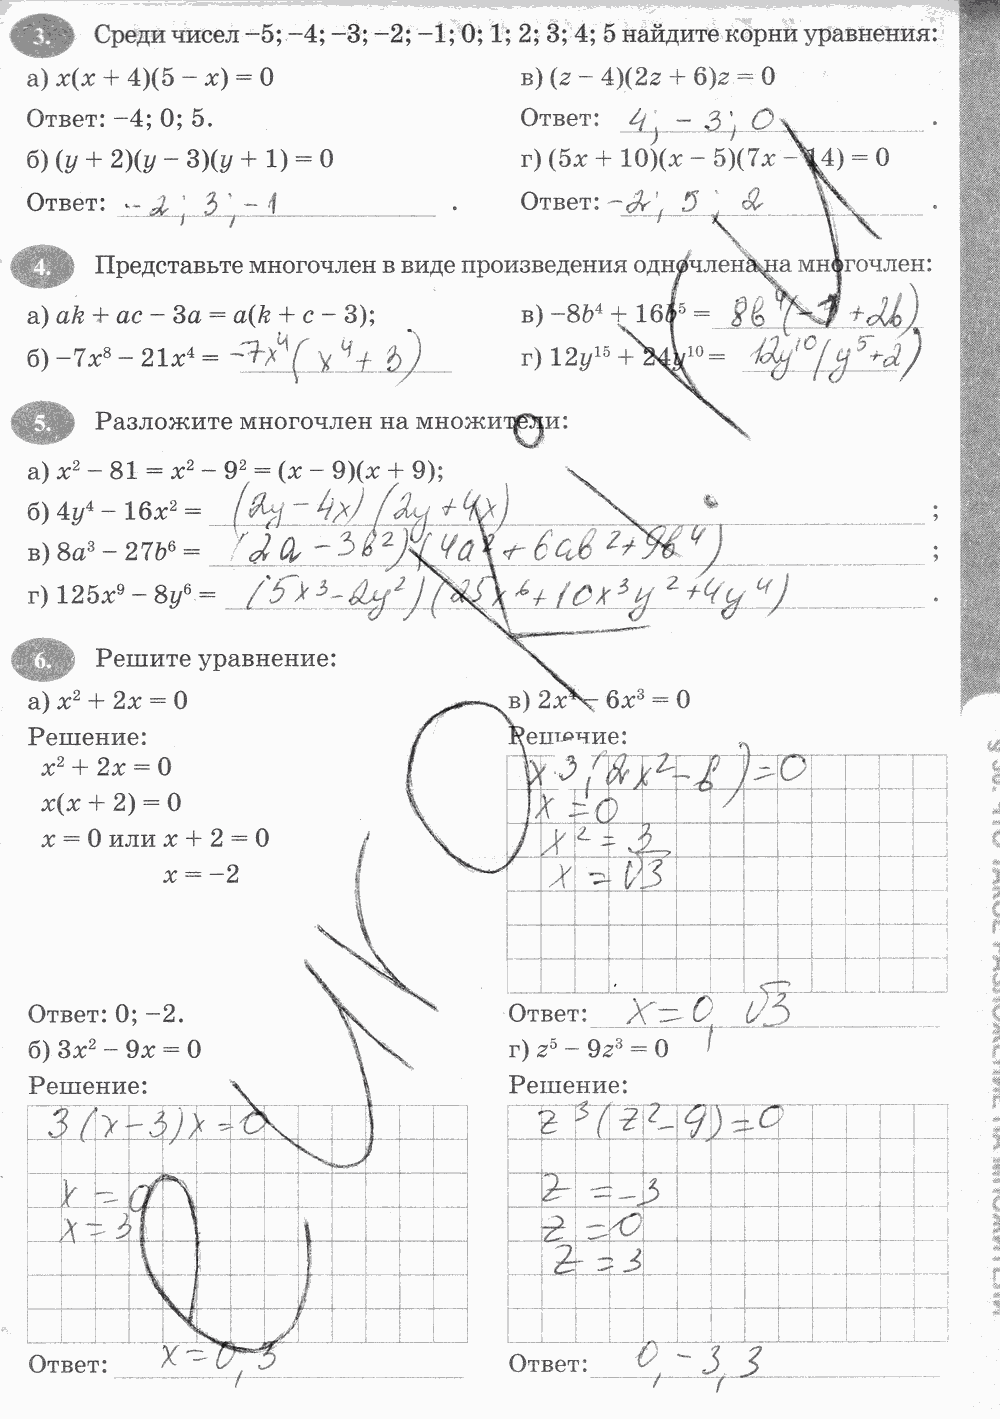 3. Среди чисел −5; −4; −3; −2; −1; 0; 1; 2; 3; 4; 5 найдите корни уравнения:
а) x(x + 4)(5 − x) = 0
Ответ: −4; 0; 5.
б) (y + 2)(y − 3)(y + 1) = 0
Ответ: −2; 3; −1.
в) (z − 4)(2z + 6)z = 0
Ответ: 4; −3; 0.
г) (5x + 10)(x − 5)(7x − 14) = 0
Ответ: −2; 5; 2.
4. Представьте многочлен в виде произведения одночлена на многочлен:
а) ak + ac − 3a = a(k + c − 3);
б) −7x⁸ − 21x⁴ = −7x⁴(x⁴ + 3)
в) −8b⁴ + 16b⁵ = 8b⁴(−1 + 2b)
г) 12y¹⁵ + 24y¹⁰ = 12y¹⁰(y⁵ + 2)
5. Разложите многочлен на множители:
а) x² − 81 = x² − 9² = (x − 9)(x + 9);
б) 4y⁴ − 16x² = (2y − 4x)(2y + 4x);
в) 8a³ − 27b⁶ = (2a − 3b²)(4a² + 6ab² + 9b⁴);
г) 125x⁹ − 8y⁶ = (5x³ − 2y²)(25x⁶ + 10x³y² + 4y⁴).
6. Решите уравнение:
а) x² + 2x = 0
Решение:
x² + 2x = 0
x(x + 2) = 0
x = 0 или x + 2 = 0
x = −2
Ответ: 0; −2.
б) 3x² − 9x = 0
Решение:
3(x − 3)x = 0
x = 0
x = 3
Ответ: x = 0, 3
в) 2x⁴ − 6x³ = 0
Решение:
x³(2x² − 6) = 0
x = 0
x² = 3
x = √3
Ответ: x = 0, √3
г) z⁵ − 9z³ = 0
Решение:
z³(z² − 9) = 0
z = −3
z = 0
z = 3
Ответ: 0, −3, 3